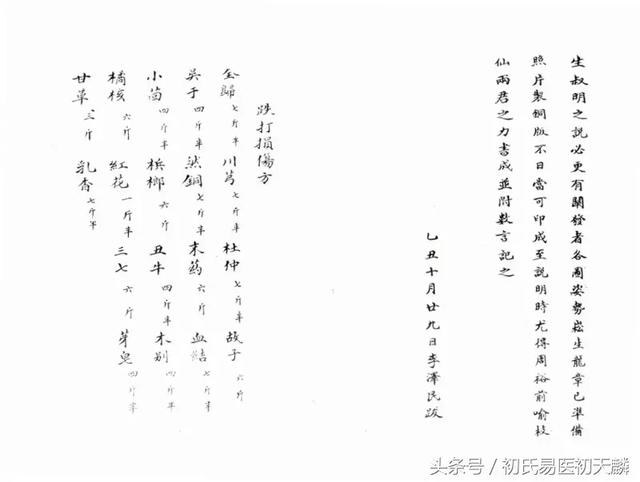 生叔明之説必更有闡發者各圖姿勢崧生龍章已準備
照片製銅版不日當可印成至説明時尤得周裕前喻
仙兩君之力書成並附數言記之
乙丑十月廿九日李澤民跋
跌打損傷方
全歸 七斤半 川芎 七斤半 杜仲 七斤半 故子 六斤
吳于 四斤半 然銅 七斤半 末药 六斤 血结 七斤半
小茴 四斤半 梹榔 六斤 丑牛 四斤半 木别 四斤半
橘核 六斤 紅花 一斤半 三七 六斤 芽皂 四斤半
甘草 三斤 乳香 七斤半
头条号 / 初氏易医初天麟